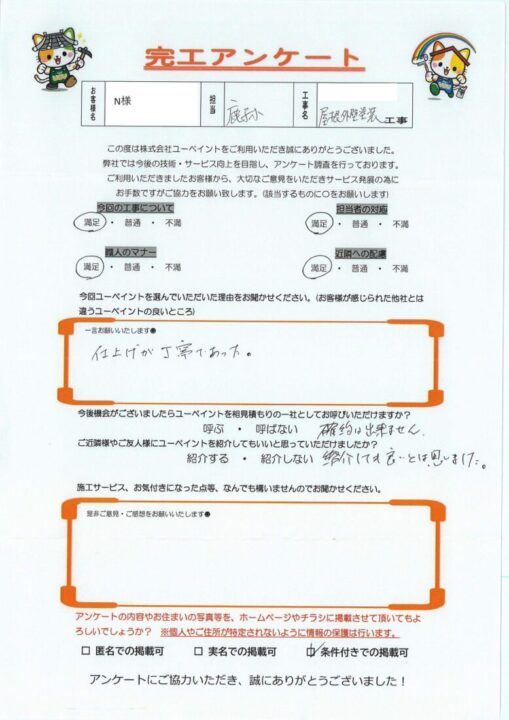 完工アンケート
お客様名 N様 担当 工事名 屋根外壁塗装工事
この度は株式会社ユーペイントをご利用いただき誠にありがとうございました。
弊社では今後の技術・サービス向上を目指し、アンケート調査を行っております。
ご利用いただきましたお客様から、大切なご意見をいただきサービス発展の為に
お手数ですがご協力をお願い致します。(該当するものに○をお願いします)
今回の工事について 担当者の対応
満足 ・ 普通 ・ 不満 満足 ・ 普通 ・ 不満
職人のマナー 近隣への配慮
満足 ・ 普通 ・ 不満 満足 ・ 普通 ・ 不満
今回ユーペイントを選んでいただいた理由をお聞かせください。(お客様が感じられた他社とは
違うユーペイントの良いところ)
一言お願いいたします●
仕上げが丁寧であった。
今後機会がございましたらユーペイントを相見積もりの一社としてお呼びいただけますか?
呼ぶ ・ 呼ばない 確約は出来ません。
ご近隣様やご友人様にユーペイントを紹介してもいいと思っていただけましたか?
紹介する ・ 紹介しない 紹介しても良いとは思いました。
施工サービス、お気付きになった点等、なんでも構いませんのでお聞かせください。
是非ご意見・ご感想をお願いいたします●
アンケートの内容やお住まいの写真等を、ホームページやチラシに掲載させて頂いてもよ
ろしいでしょうか? ※個人やご住所が特定されないように情報の保護は行います。
☐ 匿名での掲載可 ☐ 実名での掲載可 ☑ 条件付きでの掲載可
アンケートにご協力いただき、誠にありがとうございました!